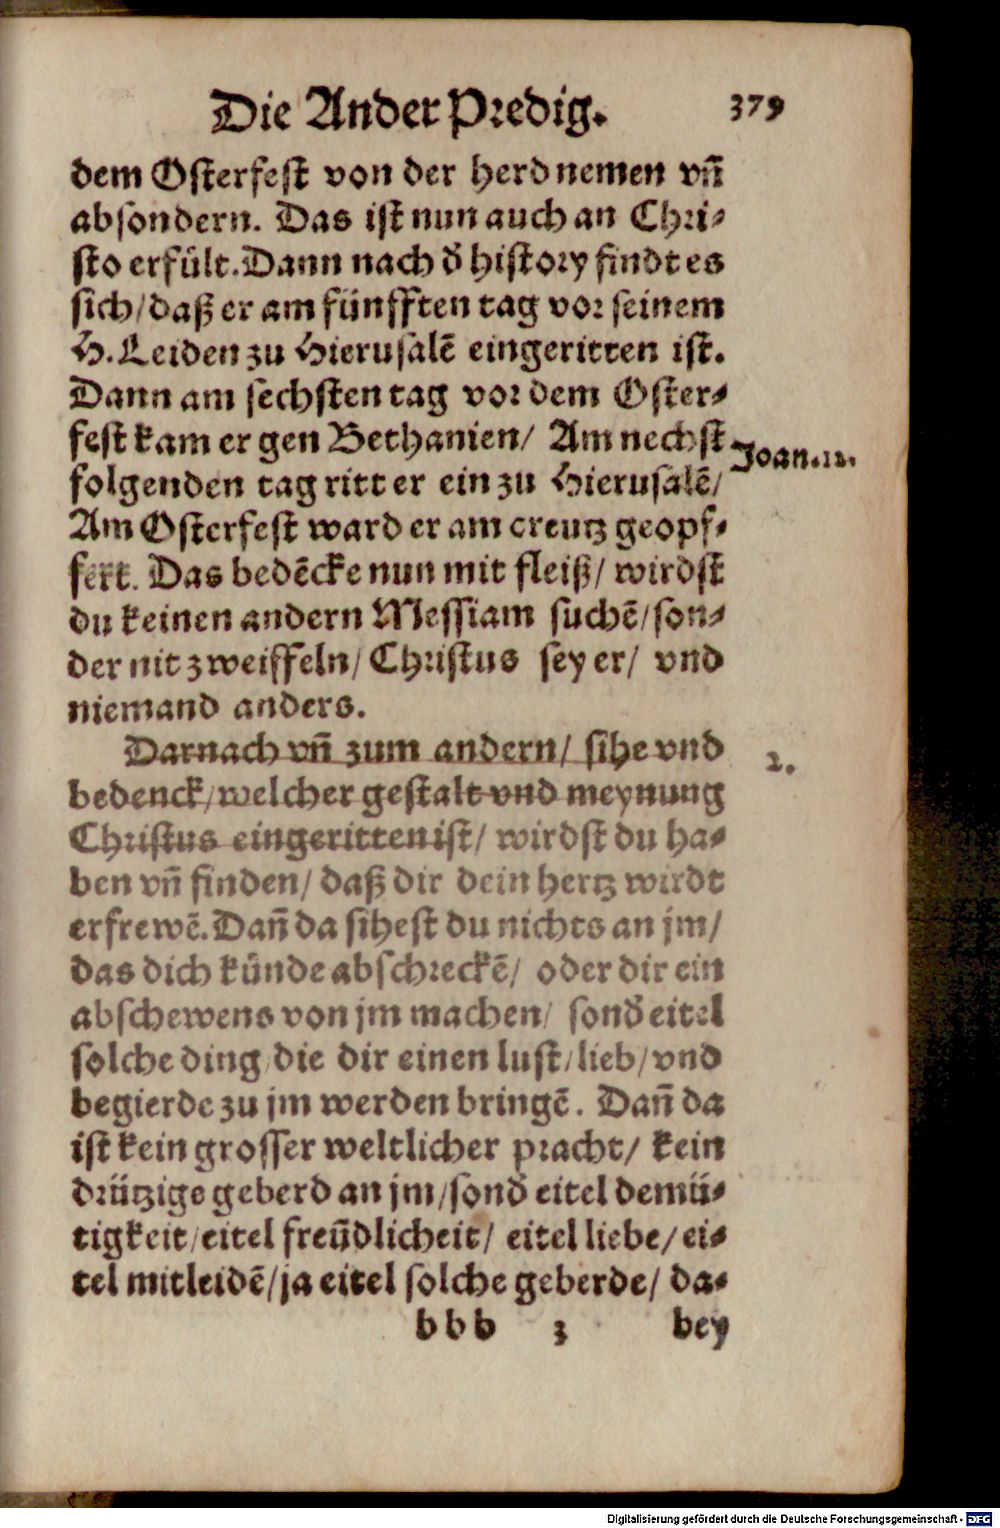 Die Ander Predig. 379
dem Osterfest von der herd nemen vñ
absondern. Das ist nun auch an Chri-
sto erfült. Dann nach d̕ history findt es
sich/ daß er am fünfften tag vor seinem
H. Leiden zu Hierusalẽ eingeritten ist.
Dann am sechsten tag vor dem Oster-
fest kam er gen Bethanien/ Am nechst
Joan. 12.
folgenden tag ritt er ein zu Hierusalẽ/
Am Osterfest ward er am creutz geopf-
fert. Das bedẽcke nun mit fleiß/ wirdst
du keinen andern Messiam suchẽ/ son-
der nit zweiffeln/ Christus sey er/ vnd
niemand anders.
Darnach vñ zum andern/ sihe vnd
2.
bedenck/ welcher gestalt vnd meynung
Christus eingeritten ist/ wirdst du ha-
ben vñ finden/ daß dir dein hertz wirdt
erfrewẽ. Dañ da sihest du nichts an jm/
das dich künde abschreckẽ/ oder dir ein
abschewens von jm machen/ sond̕ eitel
solche ding/ die dir einen lust/ lieb/ vnd
begierde zu jm werden bringẽ. Dañ da
ist kein grosser weltlicher pracht/ kein
drützige geberd an jm/ sond̕ eitel demü-
tigkeit/ eitel freũdlicheit/ eitel liebe/ ei-
tel mitleidẽ/ ja eitel solche geberde/ da-
bbb 3 bey
Digitalisierung gefördert durch die Deutsche Forschungsgemeinschaft - DFG